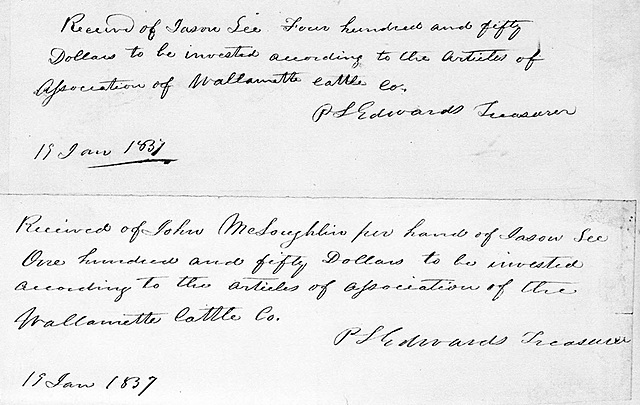 Receivd of Jason Lee Four hundred and fifty
Dollars to be invested according to the Articles of
Association of Wallamette Cattle Co.
P L Edwards Treasurer
19 Jan 1837
Received of John McLoughlin per hand of Jason Lee
One hundred and fifty Dollars to be invested
according to the articles of association of the
Wallamette Cattle Co.
P L Edwards Treasurer
19 Jan 1837